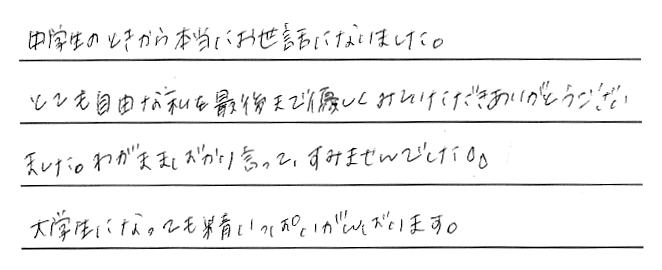 中学生のときから本当にお世話になりました。
とても自由な私を最後まで優しくみていただきありがとうござい
ました。わがままばかり言って、すみませんでした。。
大学生になっても精いっぱいがんばります。